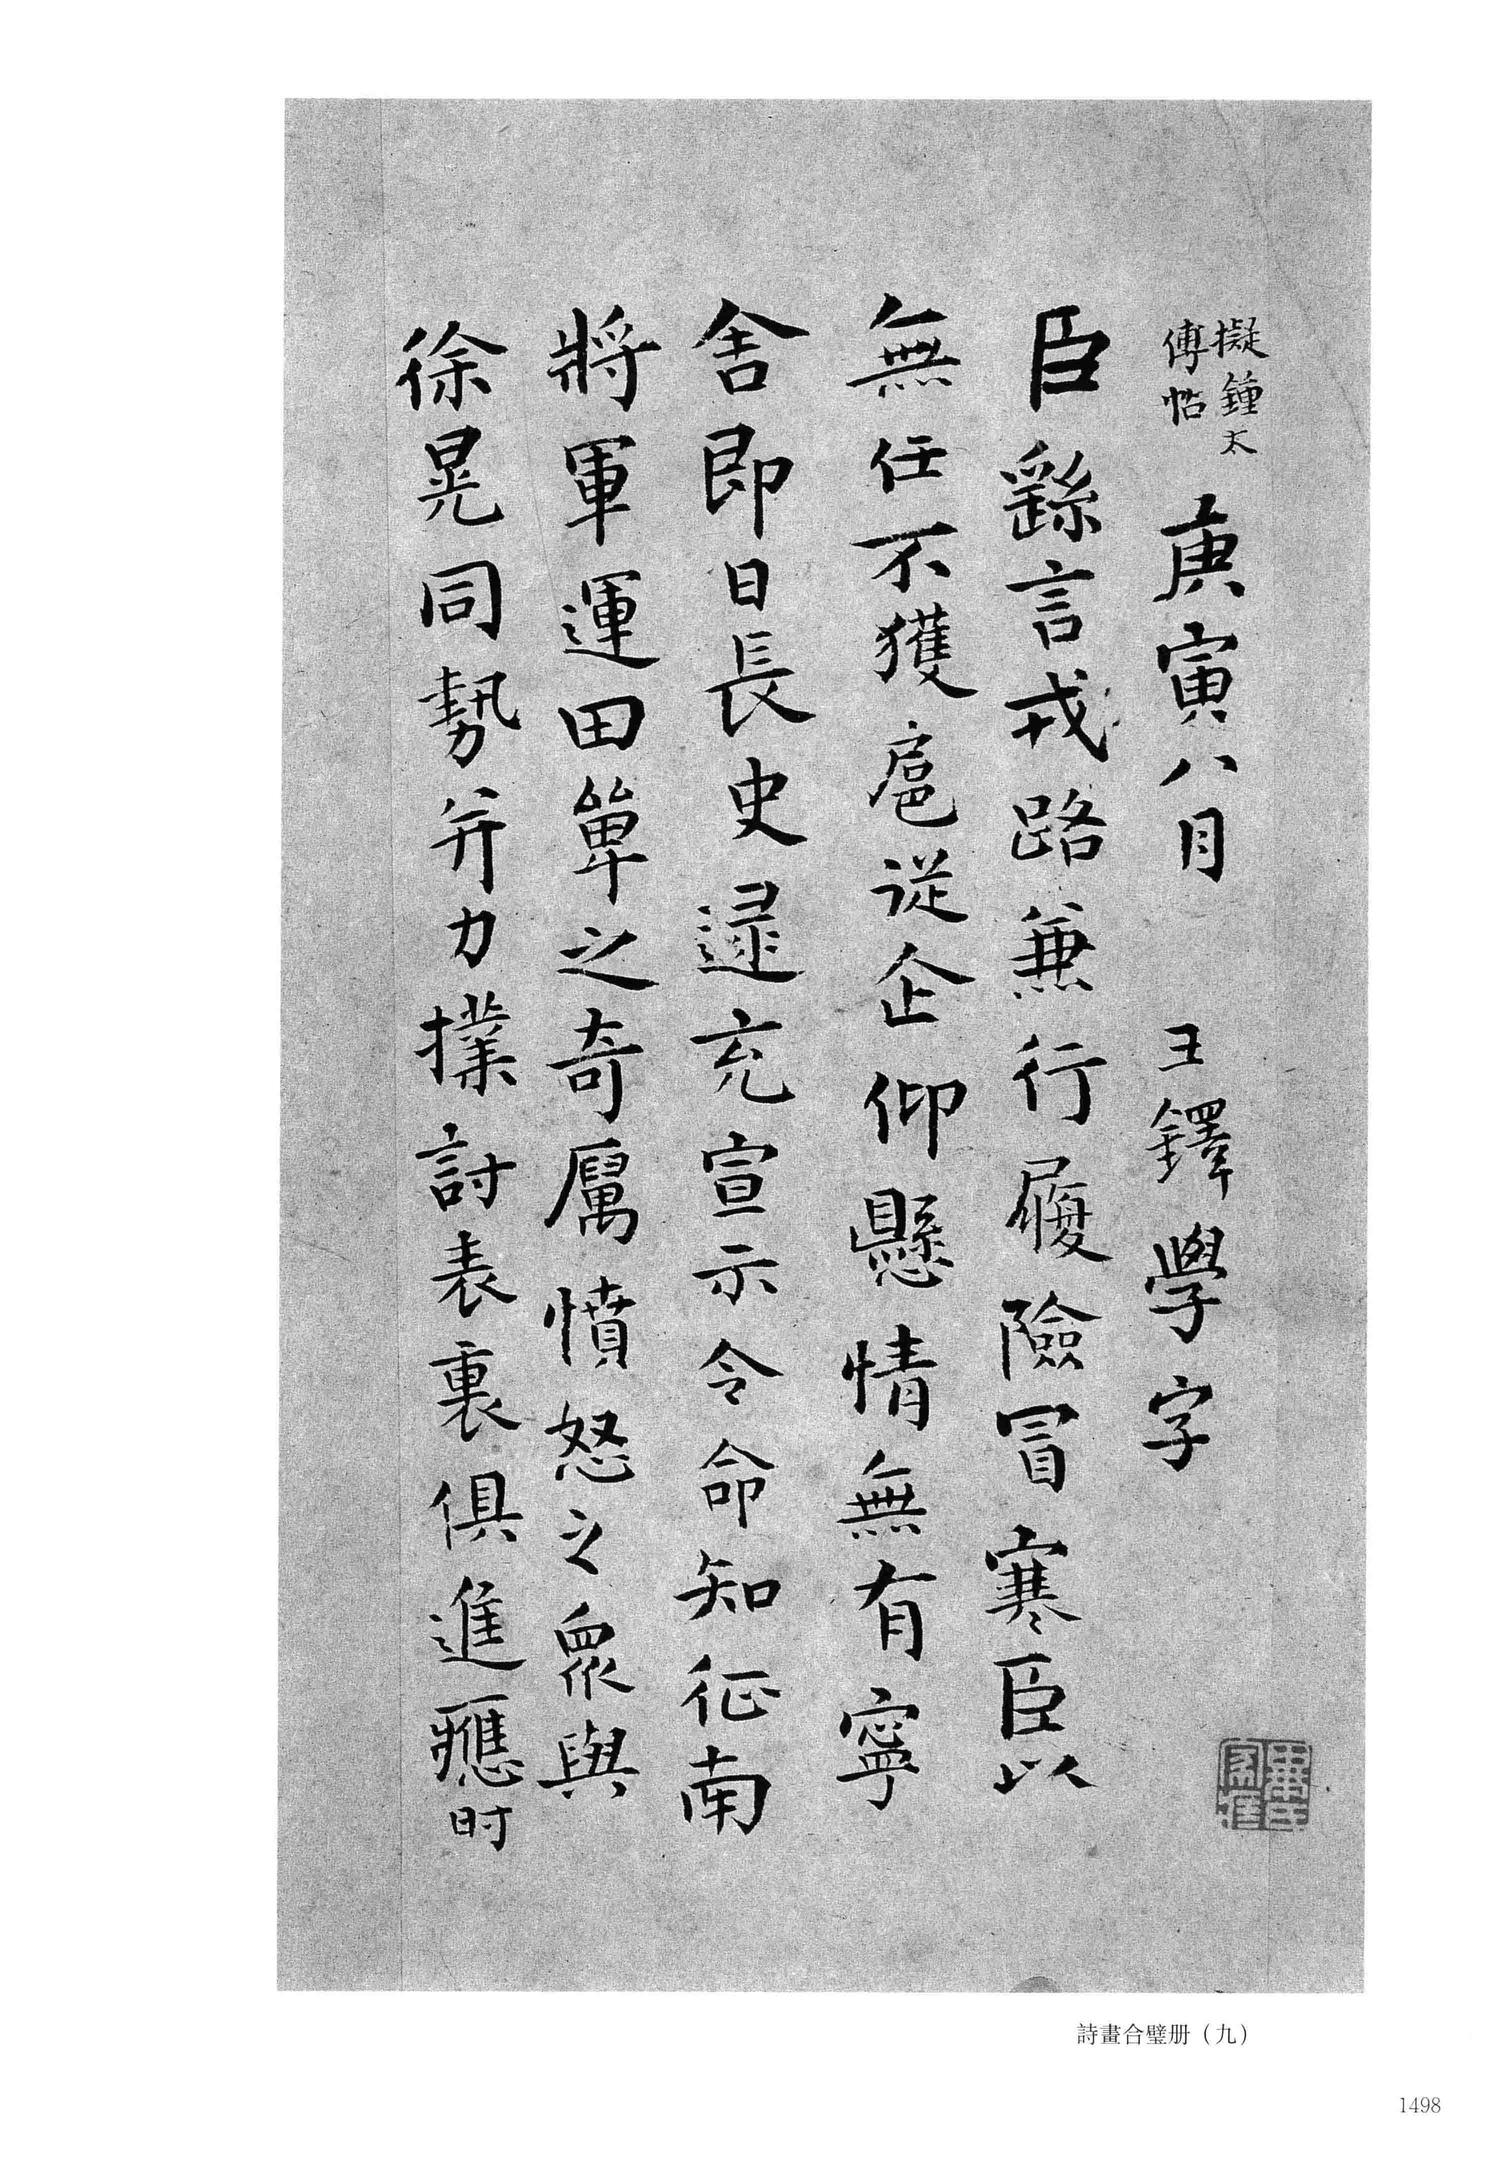 擬鍾太
傅帖
庚寅八月 王鐸學字
臣繇言戎路兼行履險冒寒臣以
無任不獲扈從企仰懸情無有寧
舍即日長史逯充宣示令命知征南
將軍運田單之奇厲憤怒之眾與
徐晃同勢并力撲討表裏俱進應时
詩畫合璧册（九）
1498